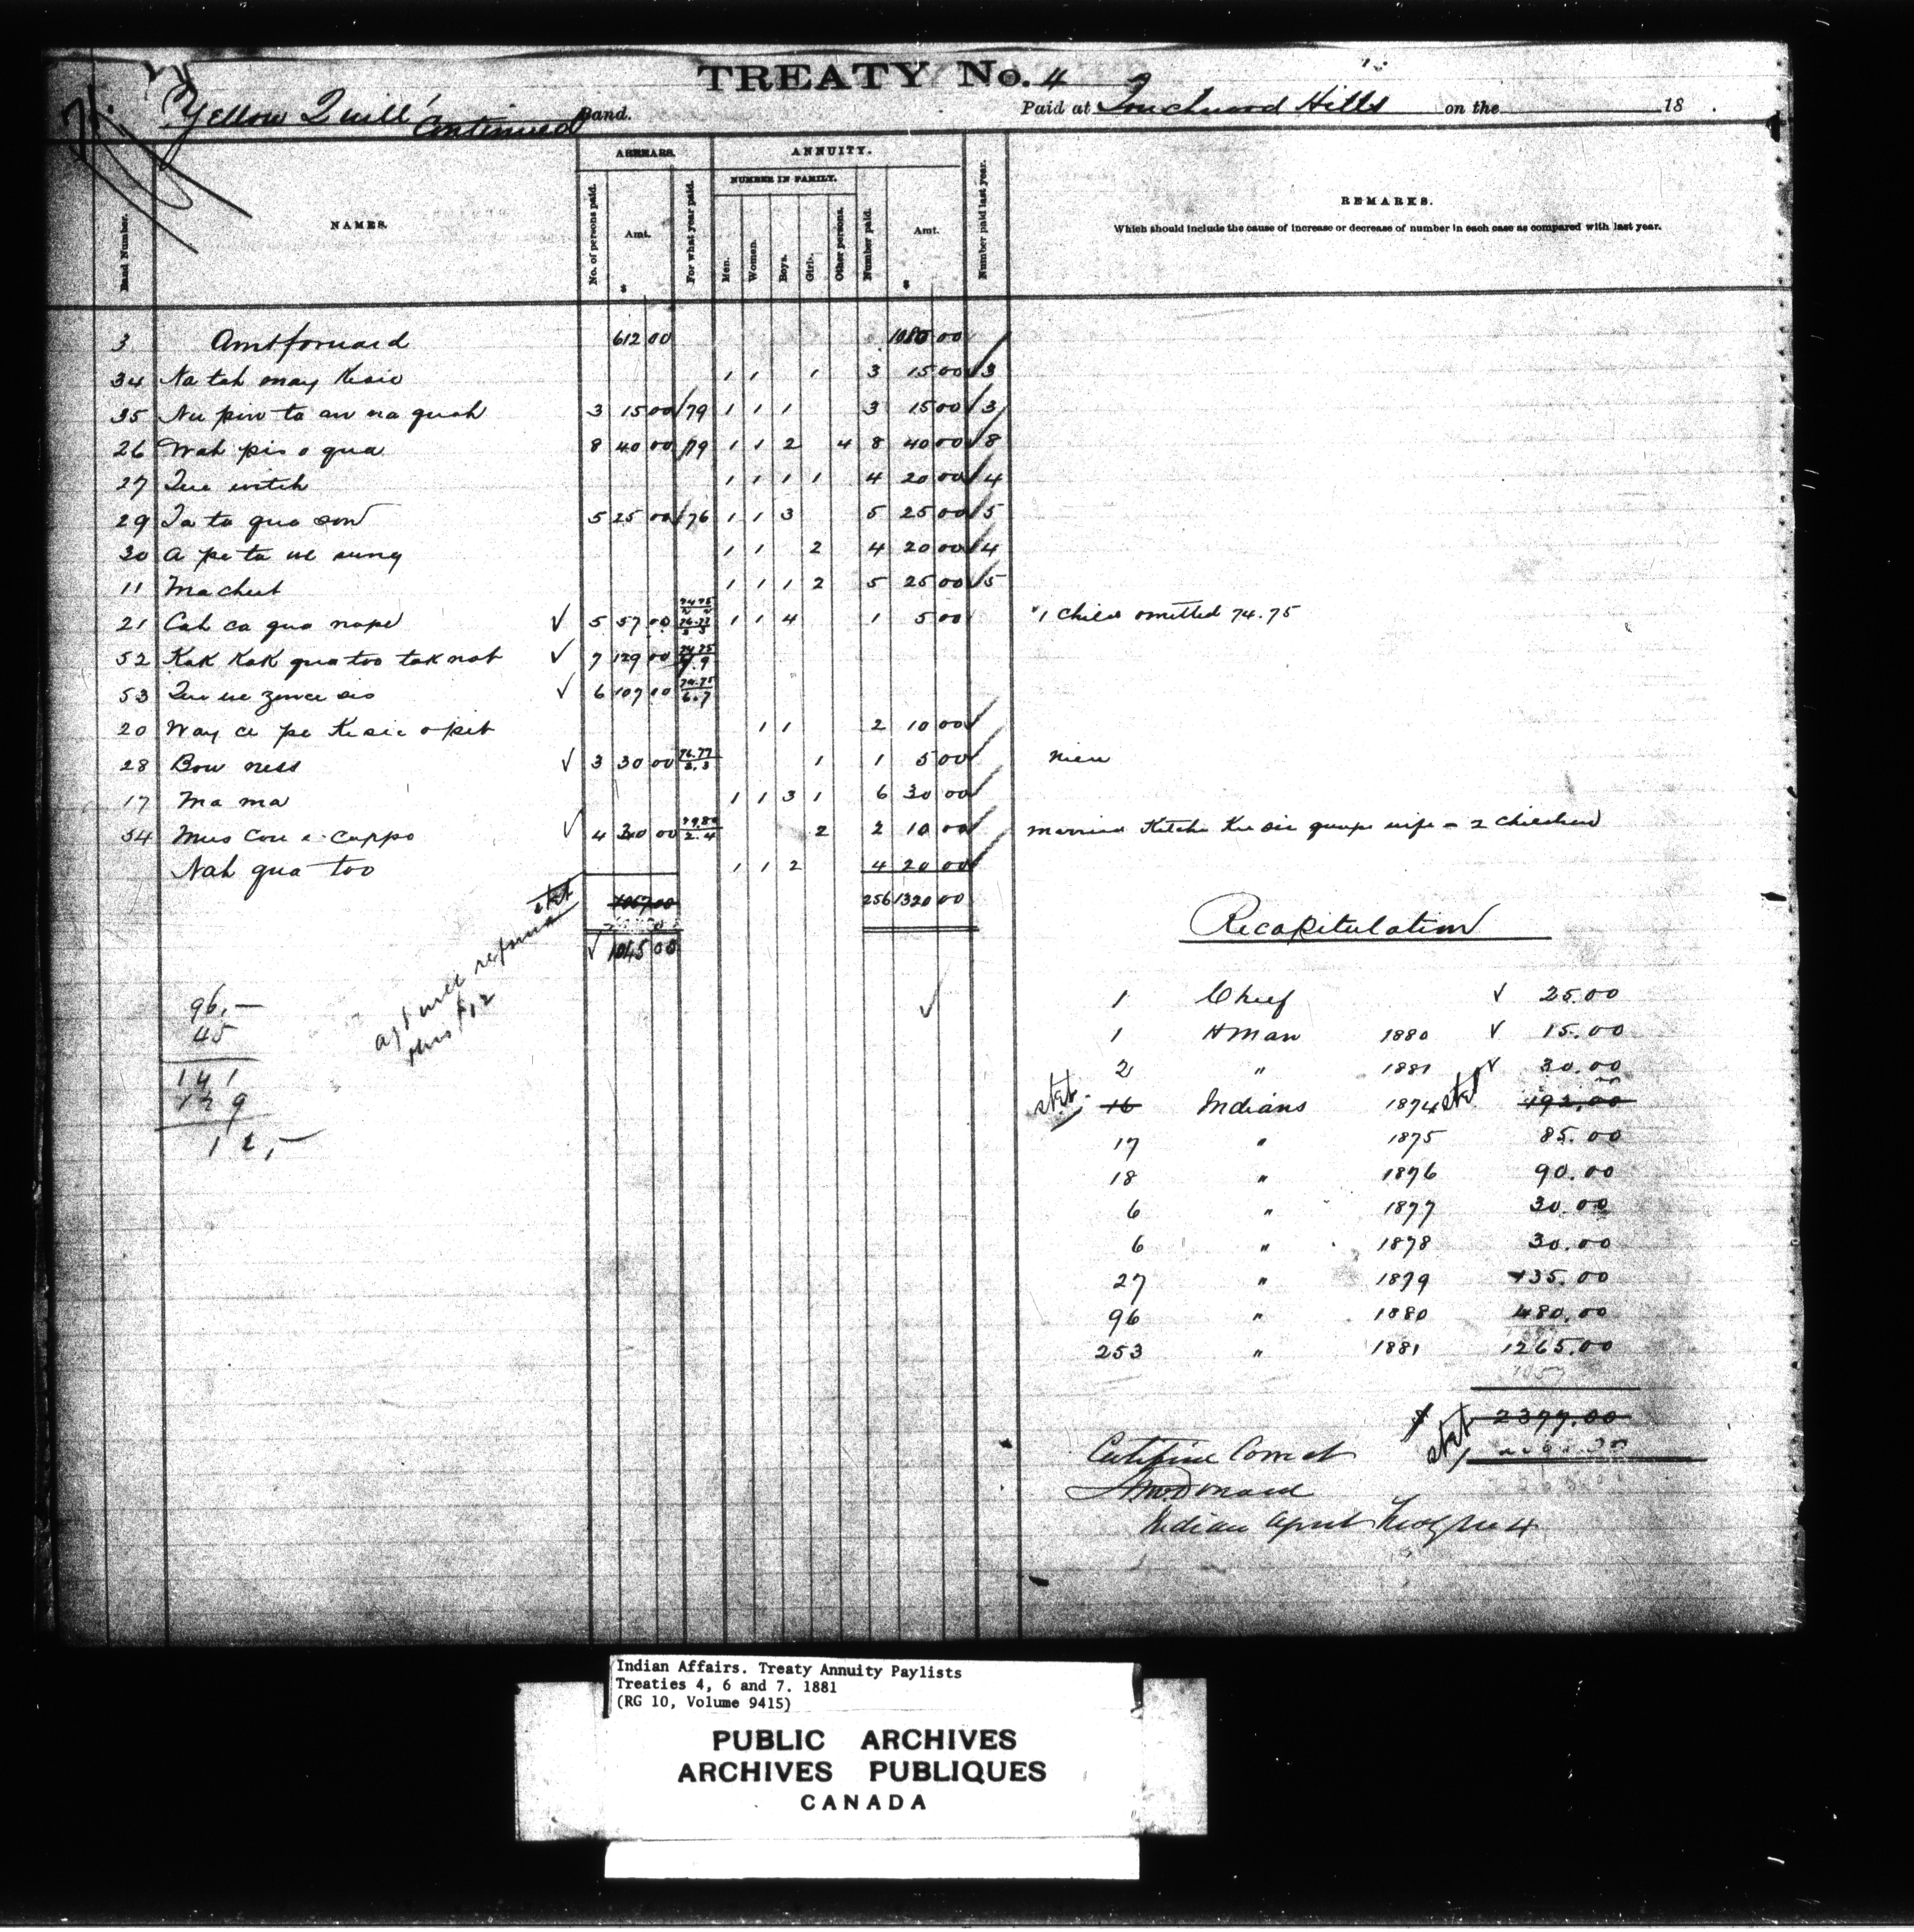 TREATY No. 4
Yellow Quill Continued Band. Paid at Touchwood Hills on the 18 .
ARREARS. ANNUITY.
NUMBER IN FAMILY.
Band Number. NAMES. No. of persons paid. Amt. $ For what year paid. Men. Women. Boys. Girls. Other persons. Number paid. Amt. $ Number paid last year. REMARKS.
Which should include the cause of increase or decrease of number in each case as compared with last year.
3 Amt forward 612 00 1080 00
34 Na tah onay Kesic 1 1 1 3 15 00 3
35 Nu pin ta an na quah 3 15 00 /79 1 1 1 3 15 00 3
26 Wah pis o qua 8 40 00 /79 1 1 2 4 8 40 00 8
27 Que witch 1 1 1 1 4 20 00 4
29 Ta ta qua son 5 25 00 /76 1 1 3 5 25 00 5
30 A pe ta we sung 1 1 2 4 20 00 4
11 Machut 1 1 1 2 5 25 00 5
21 Cah ca qua nape ✓ 5 57 00 74 75 76 77 1 1 4 1 5 00 "1 Child omitted 74.75
52 Kak Kak qua too tak not ✓ 7 129 00 74.75 9.9
53 Que we zance sis ✓ 6 107 00 74.75 6.7
20 Way ce pe Kesic o pit 1 1 2 10 00
28 Bow ness ✓ 3 30 00 76.77 3.3 1 1 5 00 New
17 Ma ma 1 1 3 1 6 30 00
54 Mus cow e cuppo ✓ 4 30 00 79.80 2.4 2 2 10 00 married Kitche Ke sic quape wife - 2 children
Nah qua too 1 1 2 4 20 00
stet 1057 00 256 1320 00
✓ 1045 00
Agt will refund
this $12
96.—
45
141
129
12,—
Recapitulation
1 Chief ✓ 25.00
1 H Man 1880 ✓ 15.00
2 " 1881 ✓ 30.00
stet 16 Indians 1874 stet 192.00
17 " 1875 85.00
18 " 1876 90.00
6 " 1877 30.00
6 " 1878 30.00
27 " 1879 135.00
96 " 1880 480.00
253 " 1881 1265.00
1057
$ stet 2377.00
Certified Correct
A McDonald
Indian Agent Treaty No 4
Indian Affairs. Treaty Annuity Paylists
Treaties 4, 6 and 7. 1881
(RG 10, Volume 9415)
PUBLIC ARCHIVES
ARCHIVES PUBLIQUES
CANADA